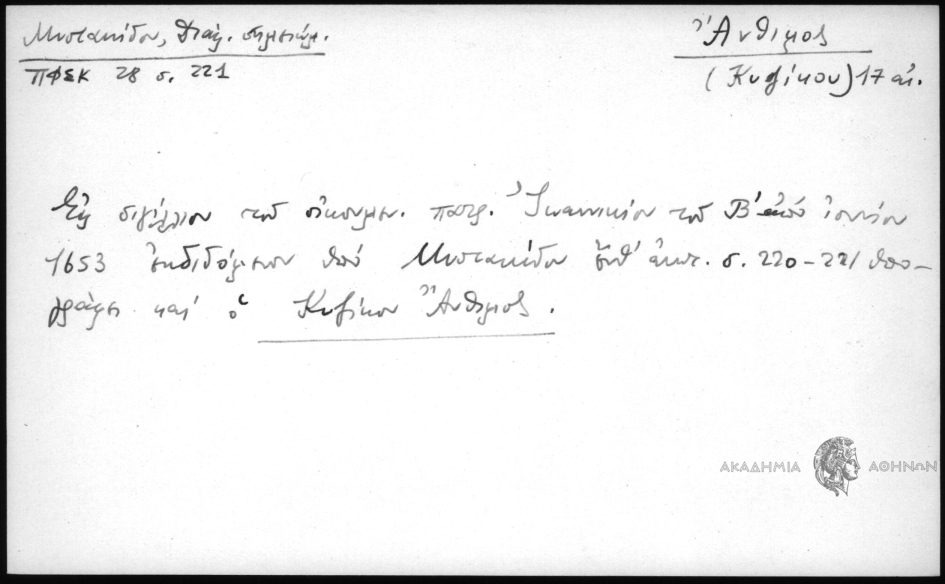 Μυστακίδου, σημειώμ.
ΠΦΣΚ 28 σ. 221
Ἄνθιμος
(Κυζίκου) 17 αἰ.
Εἰς σιγίλλιον τοῦ οἰκουμεν. πατρ. Ἰωαννικίου τοῦ Β´ ἀπὸ ἰουνίου
1653 ἐκδιδόμενον ὑπὸ Μυστακίδου ἔνθ' ἀνωτ. σ. 220-221 ὑπο-
γράφει καὶ ὁ Κυζίκου Ἄνθιμος.
ΑΚΑΔΗΜΙΑ ΑΘΗΝΩΝ